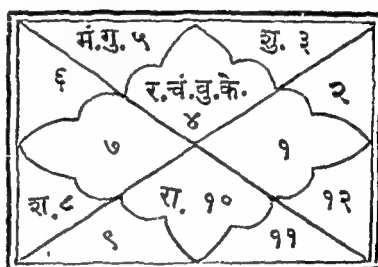 मं. गु. ५ शु. ३
६ र. चं. बु. के. २
४
७ १
श. ८ रा. १० १२
९ ११